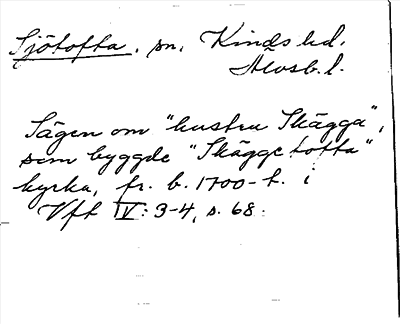 Sjötofta, sn, Kinds hd.
Älvsb. l.
Sägen om "hustru Skägga",
som byggde "Skäggetofta"
kyrka, fr. b. 1700-t. i
Vft IV: 3-4, s. 68.